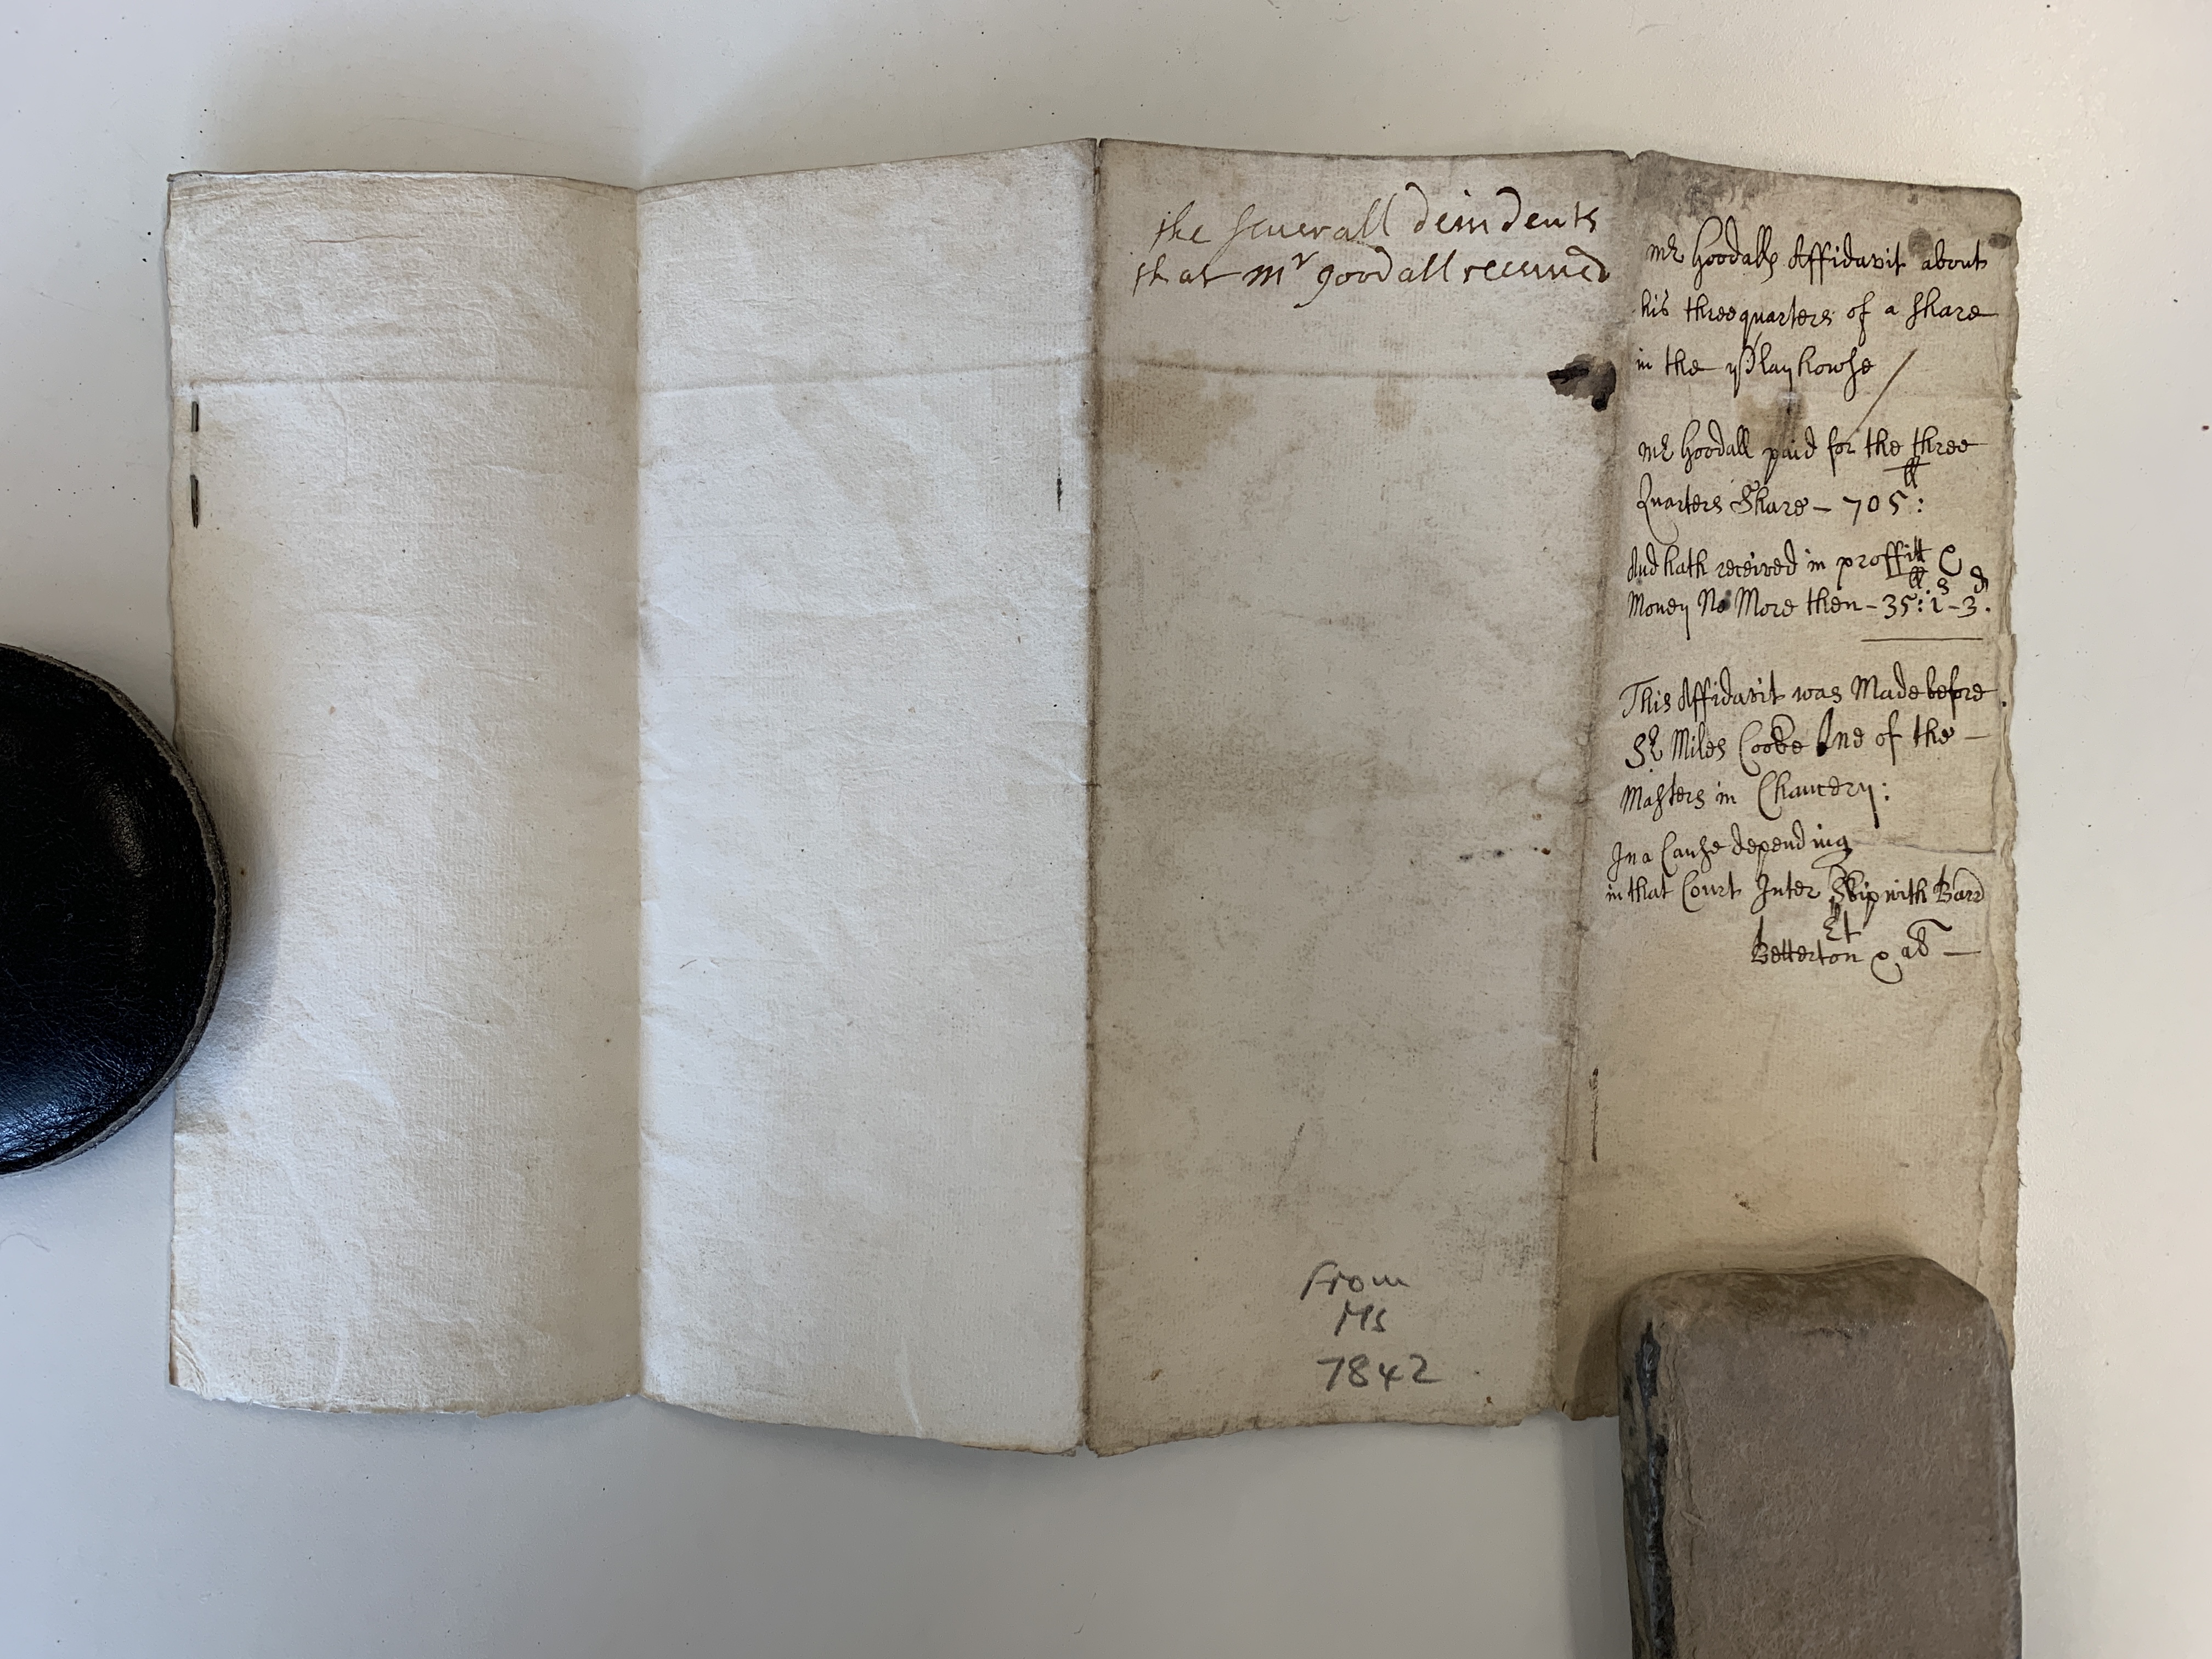 the seuerall deuidents
that mr goodall receiued
From
Ms
7842
Mr Goodalls Affidavit about
his three quarters of a share
in the Playhowse
Mr Goodall paid for the three
Quarters Share – 705ll:
And hath received in proffitt
Money No More then – 35ll: 1s – 3d.
This Affidavit was Made before
Sr Miles Cooke One of the –
Masters in Chancery:
In a Cause depending
in that Court Inter Skipwith Barr
Et
Betterton & al –